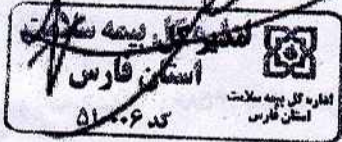 مدیرکل بیمه سلامت
استان فارس
کد ۵۱۰۰۶
اداره کل بیمه سلامت
استان فارس